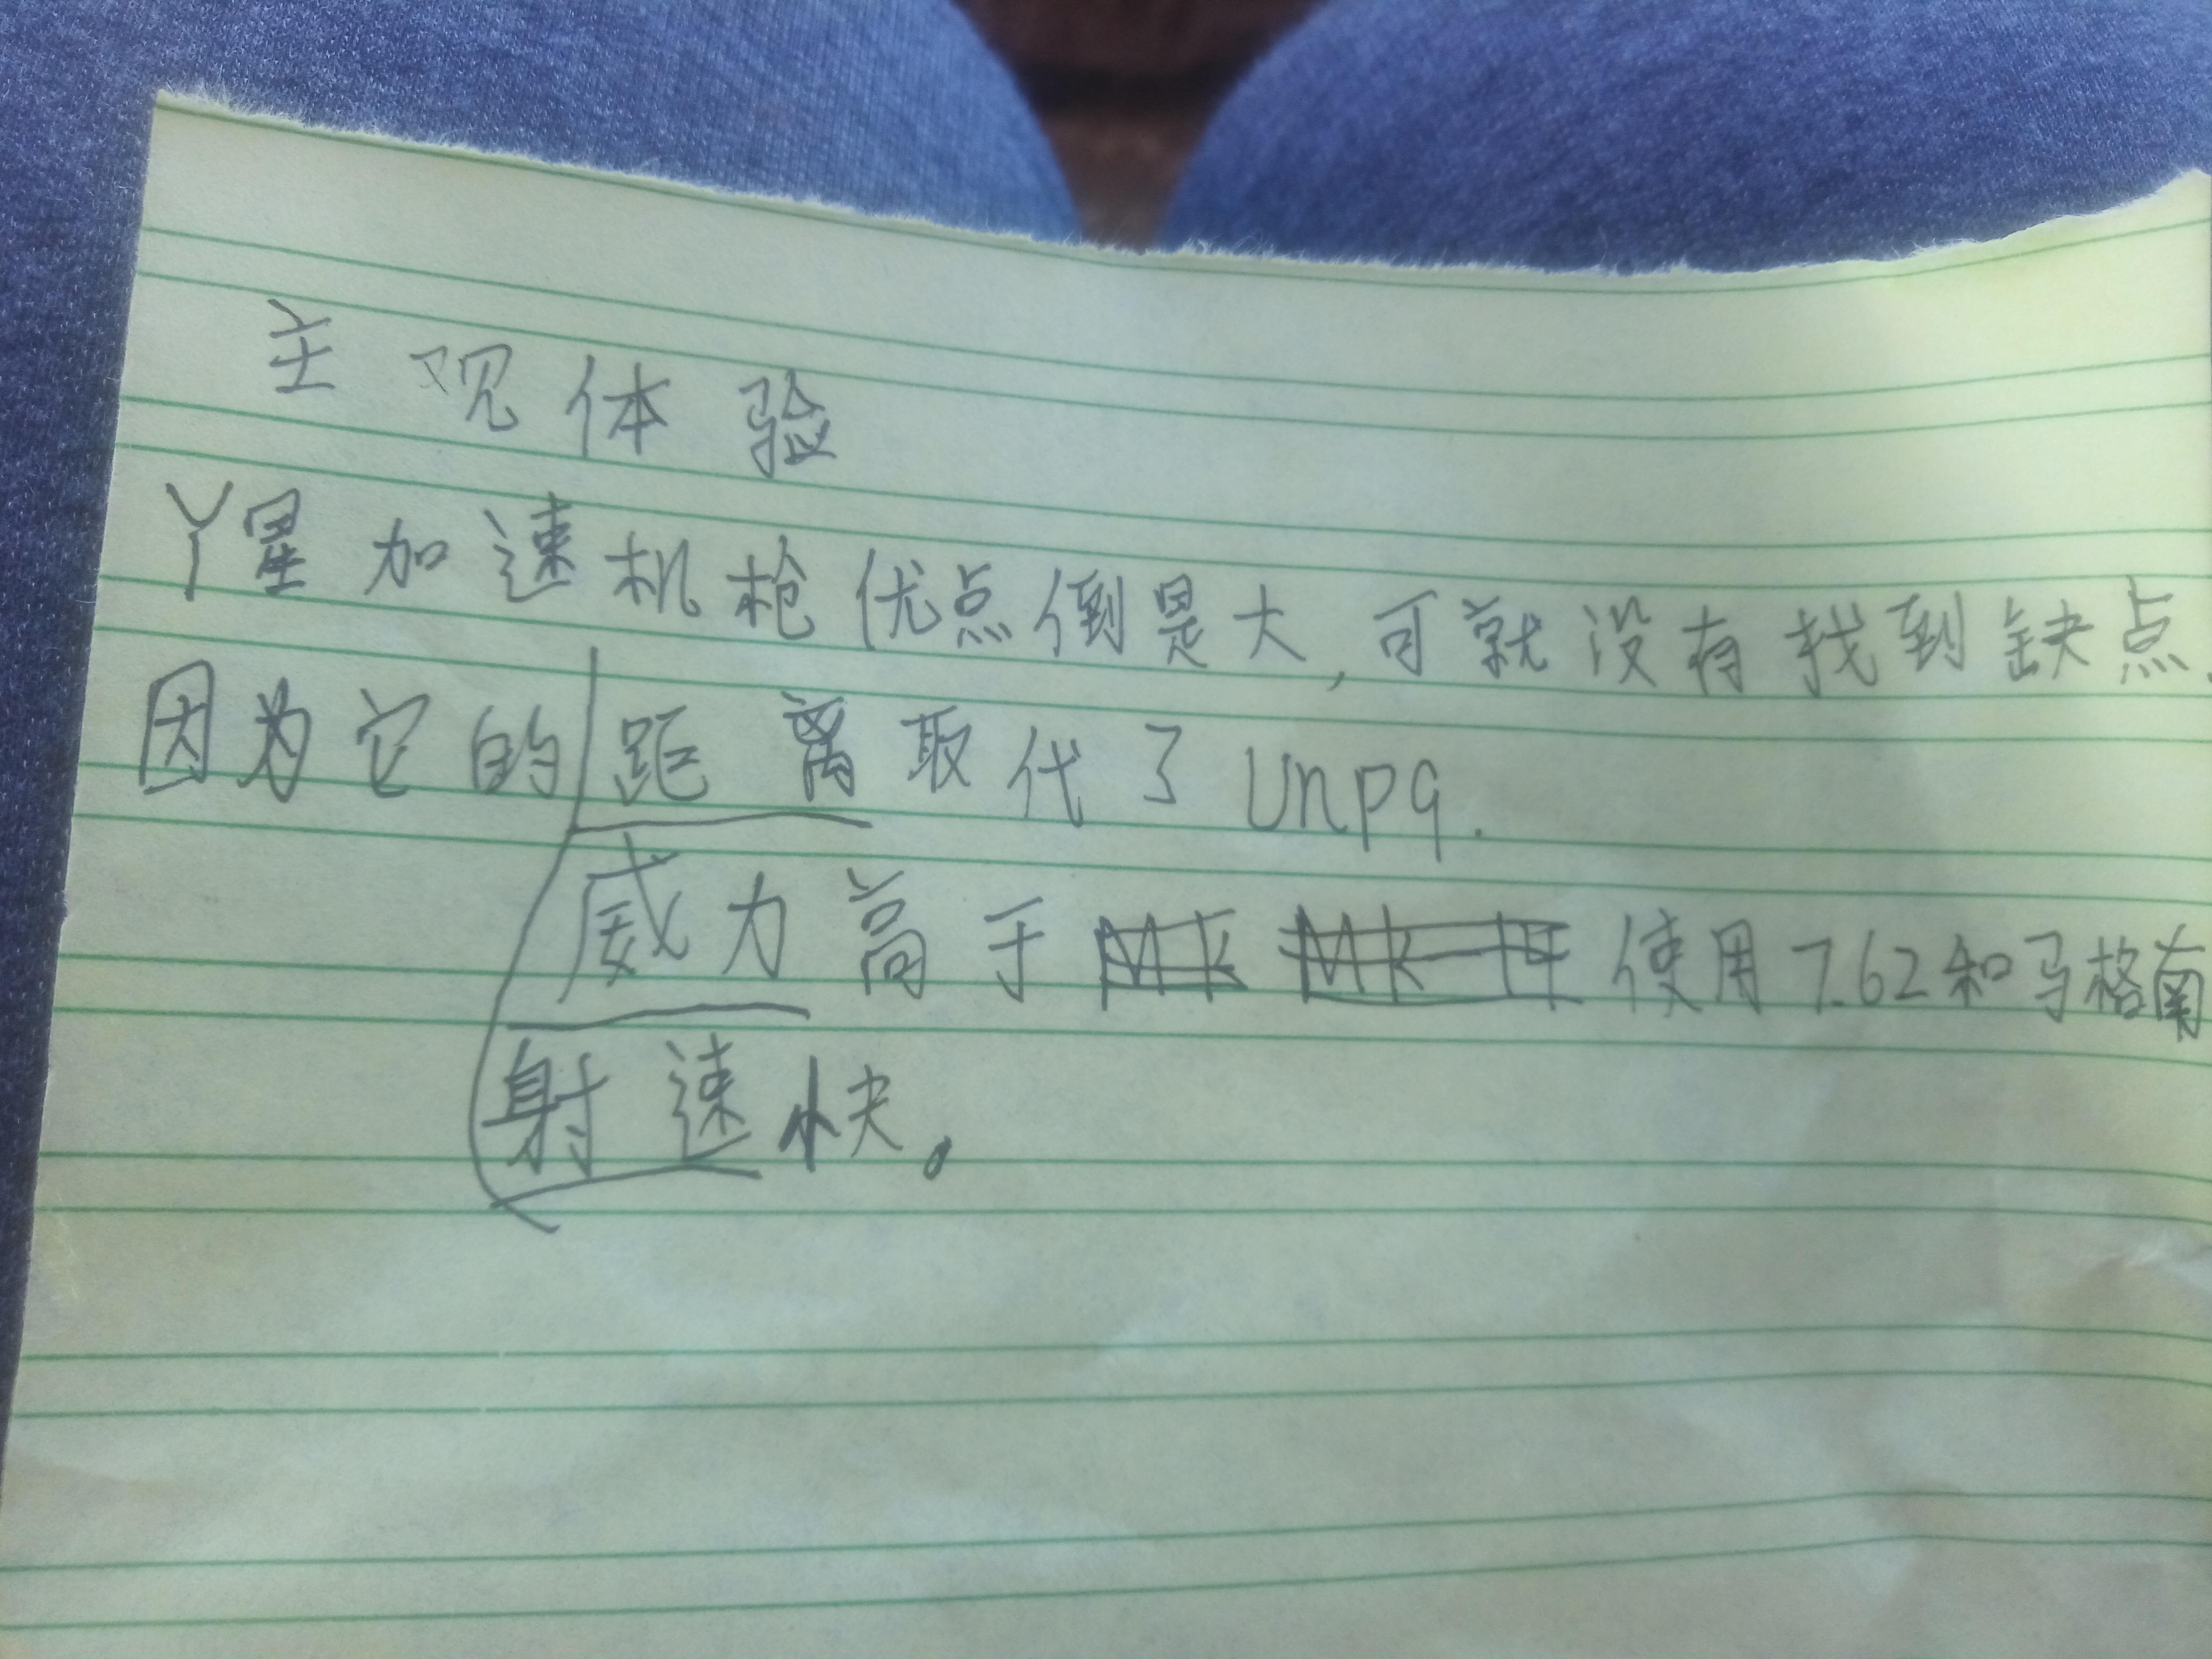 主观体验
丫星加速机枪优点倒是大,可就没有找到缺点.
因为它的距离取代了Unpq.
威力高于使用7.62和马格南
射速快.